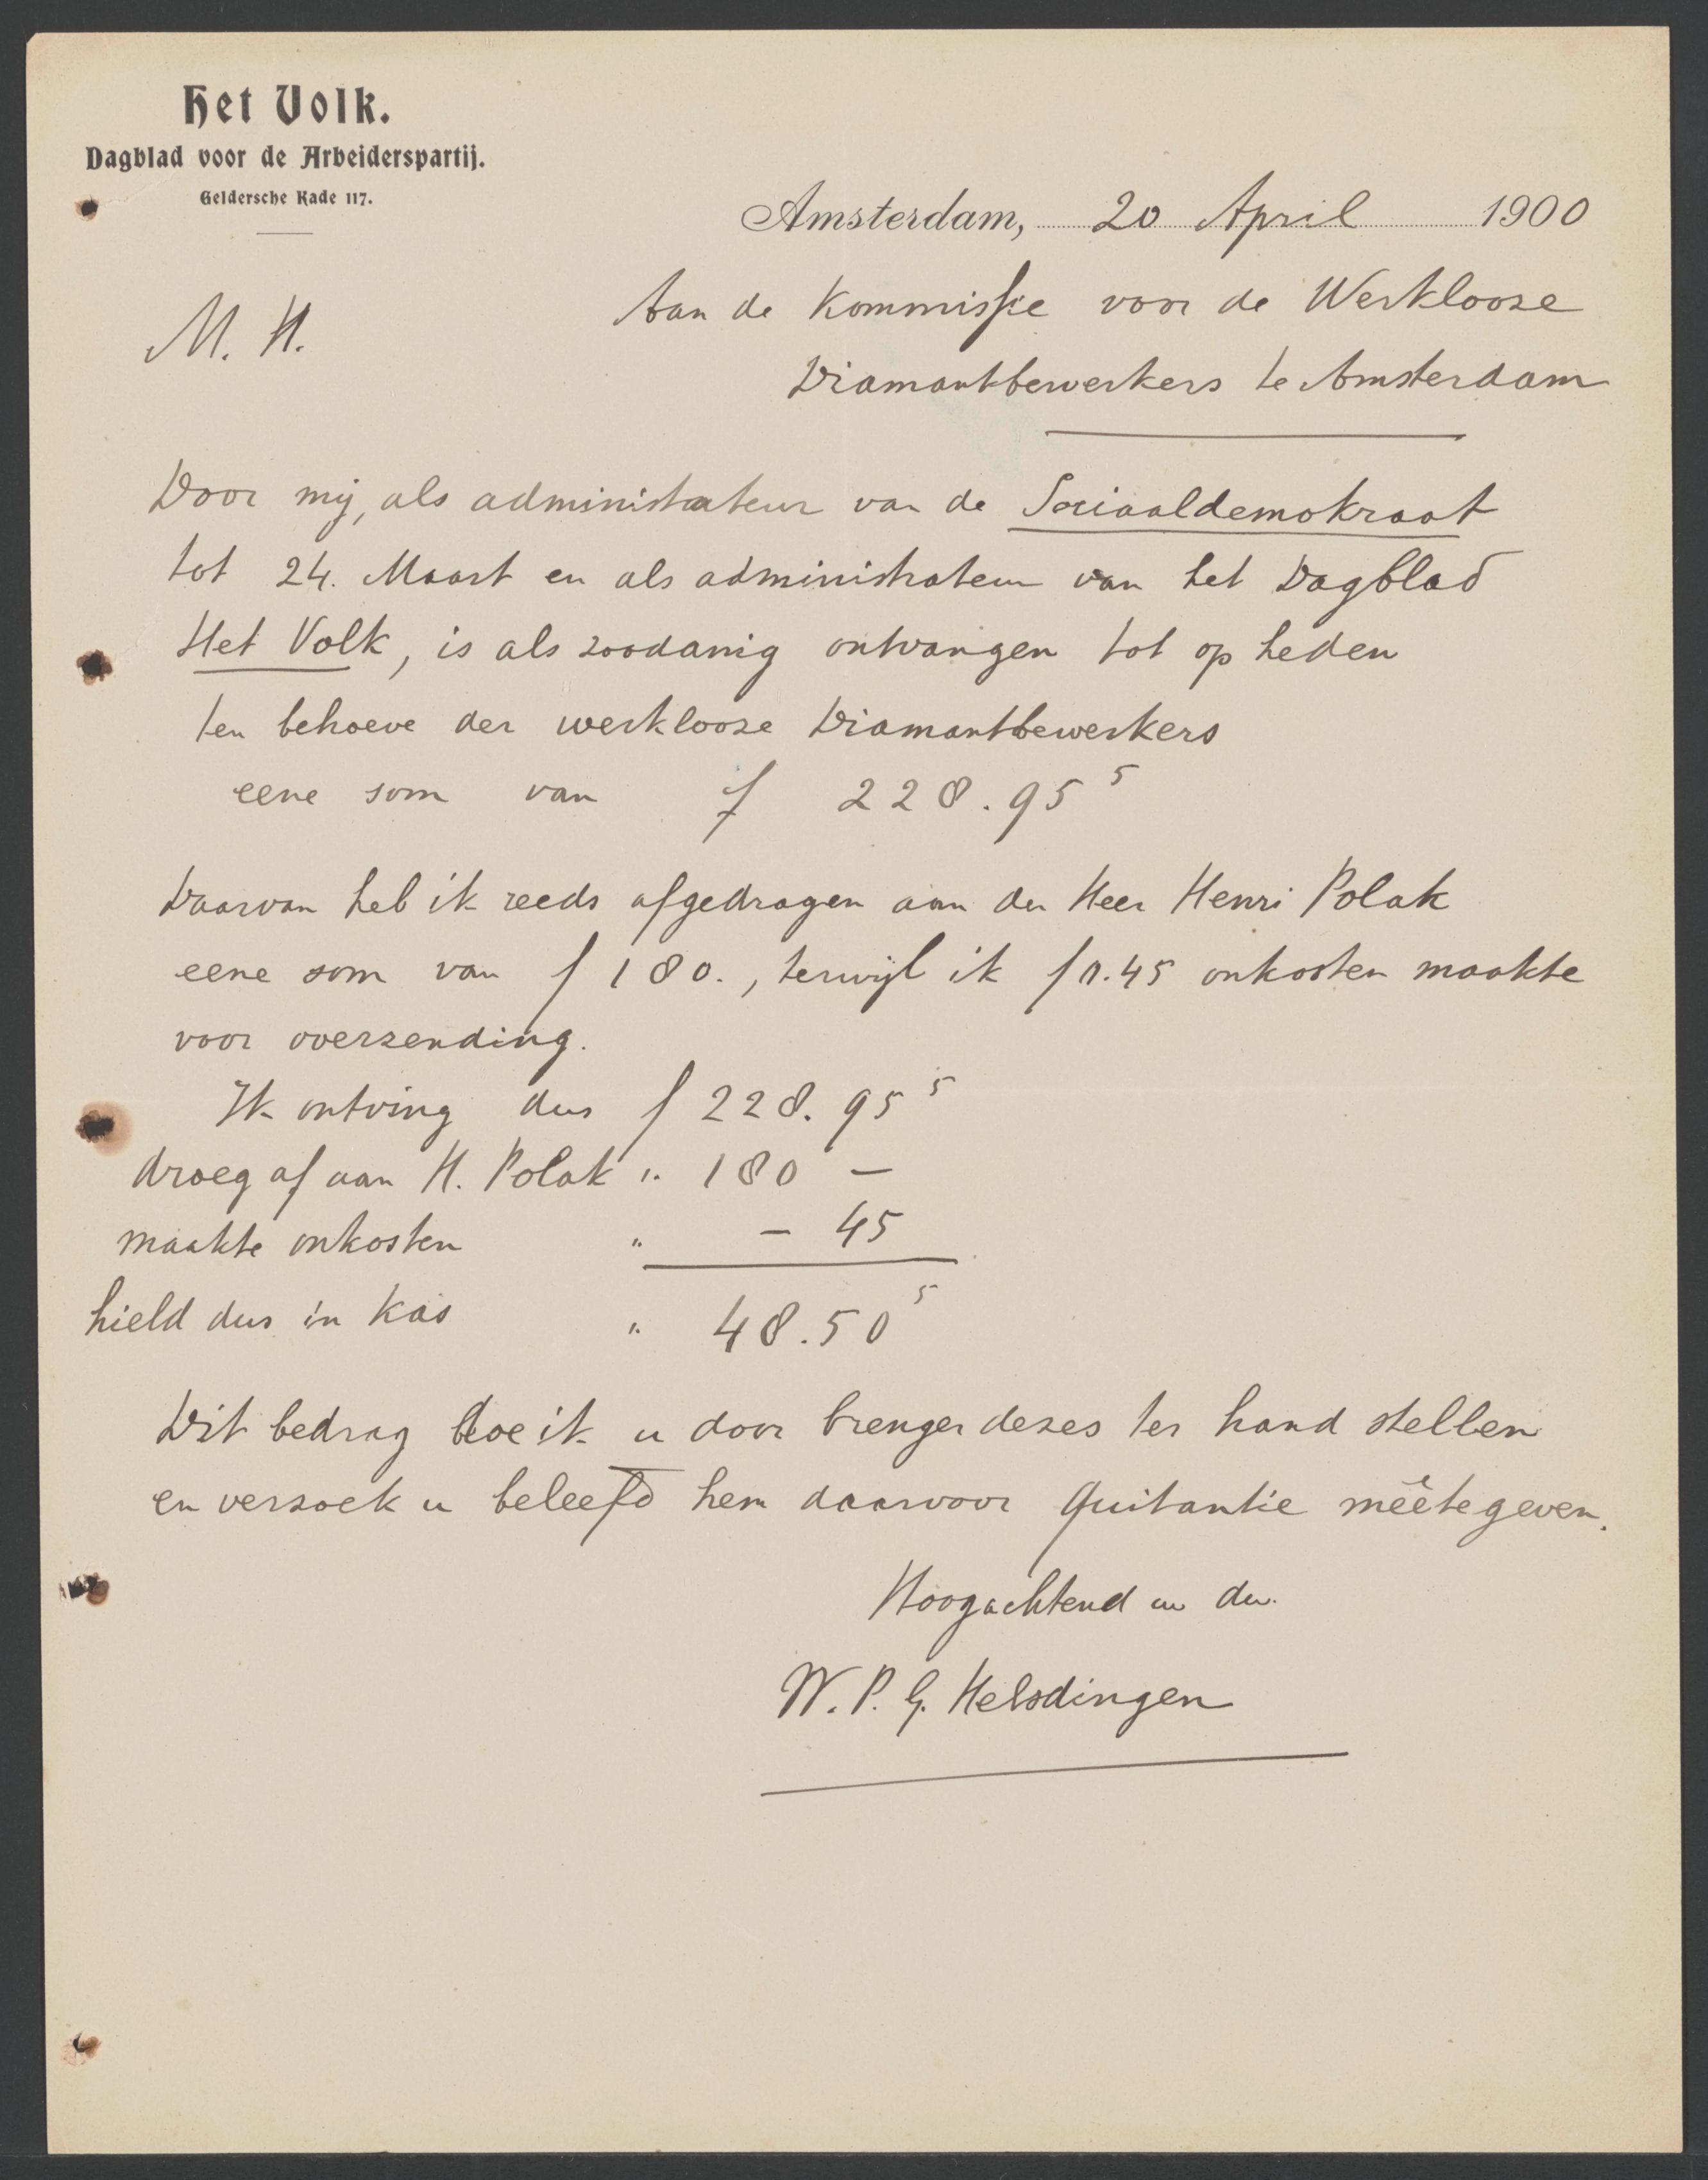 Het Volk.
Dagblad voor de Arbeiderspartij.
Geldersche Kade 117.
Amsterdam, 20 April 1900
Aan de Kommissie voor de Werklooze
M. H.
Diamantbewerkers te Amsterdam
Door mij, als administrateur van de Sociaaldemokraat
tot 24. Maart en als administrateur van het Dagblad
Het Volk, is als zoodanig ontvangen tot op heden
ten behoeve der werklooze Diamantbewerkers
eene som van f 228.95⁵
Daarvan heb ik reeds afgedragen aan den Heer Henri Polak
eene som van f 180., terwijl ik f 0.45 onkosten maakte
voor overzending.
Ik ontving dus f 228.95⁵
droeg af aan H. Polak " 180 —
maakte onkosten " — 45
hield dus in kas " 48.50⁵
Dit bedrag doe ik u door brenger dezes ter hand stellen
en verzoek u beleefd hem daarvoor quitantie meêtegeven.
Hoogachtend uw dw.
W. P. G. Helsdingen